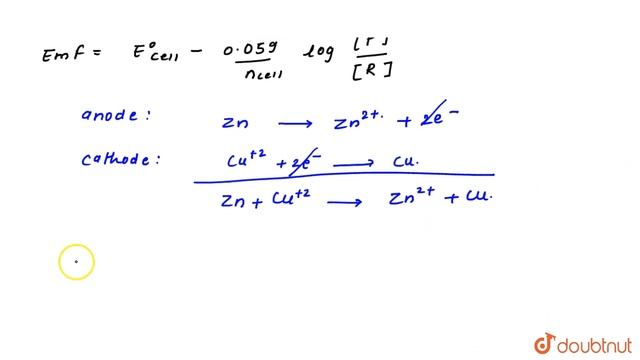 Emf = E°cell - 0.059/ncell log [P]/[R]
anode: Zn → Zn²⁺ + 2e⁻
cathode: Cu⁺² + 2e⁻ → Cu.
Zn + Cu⁺² → Zn²⁺ + Cu.
doubtnut